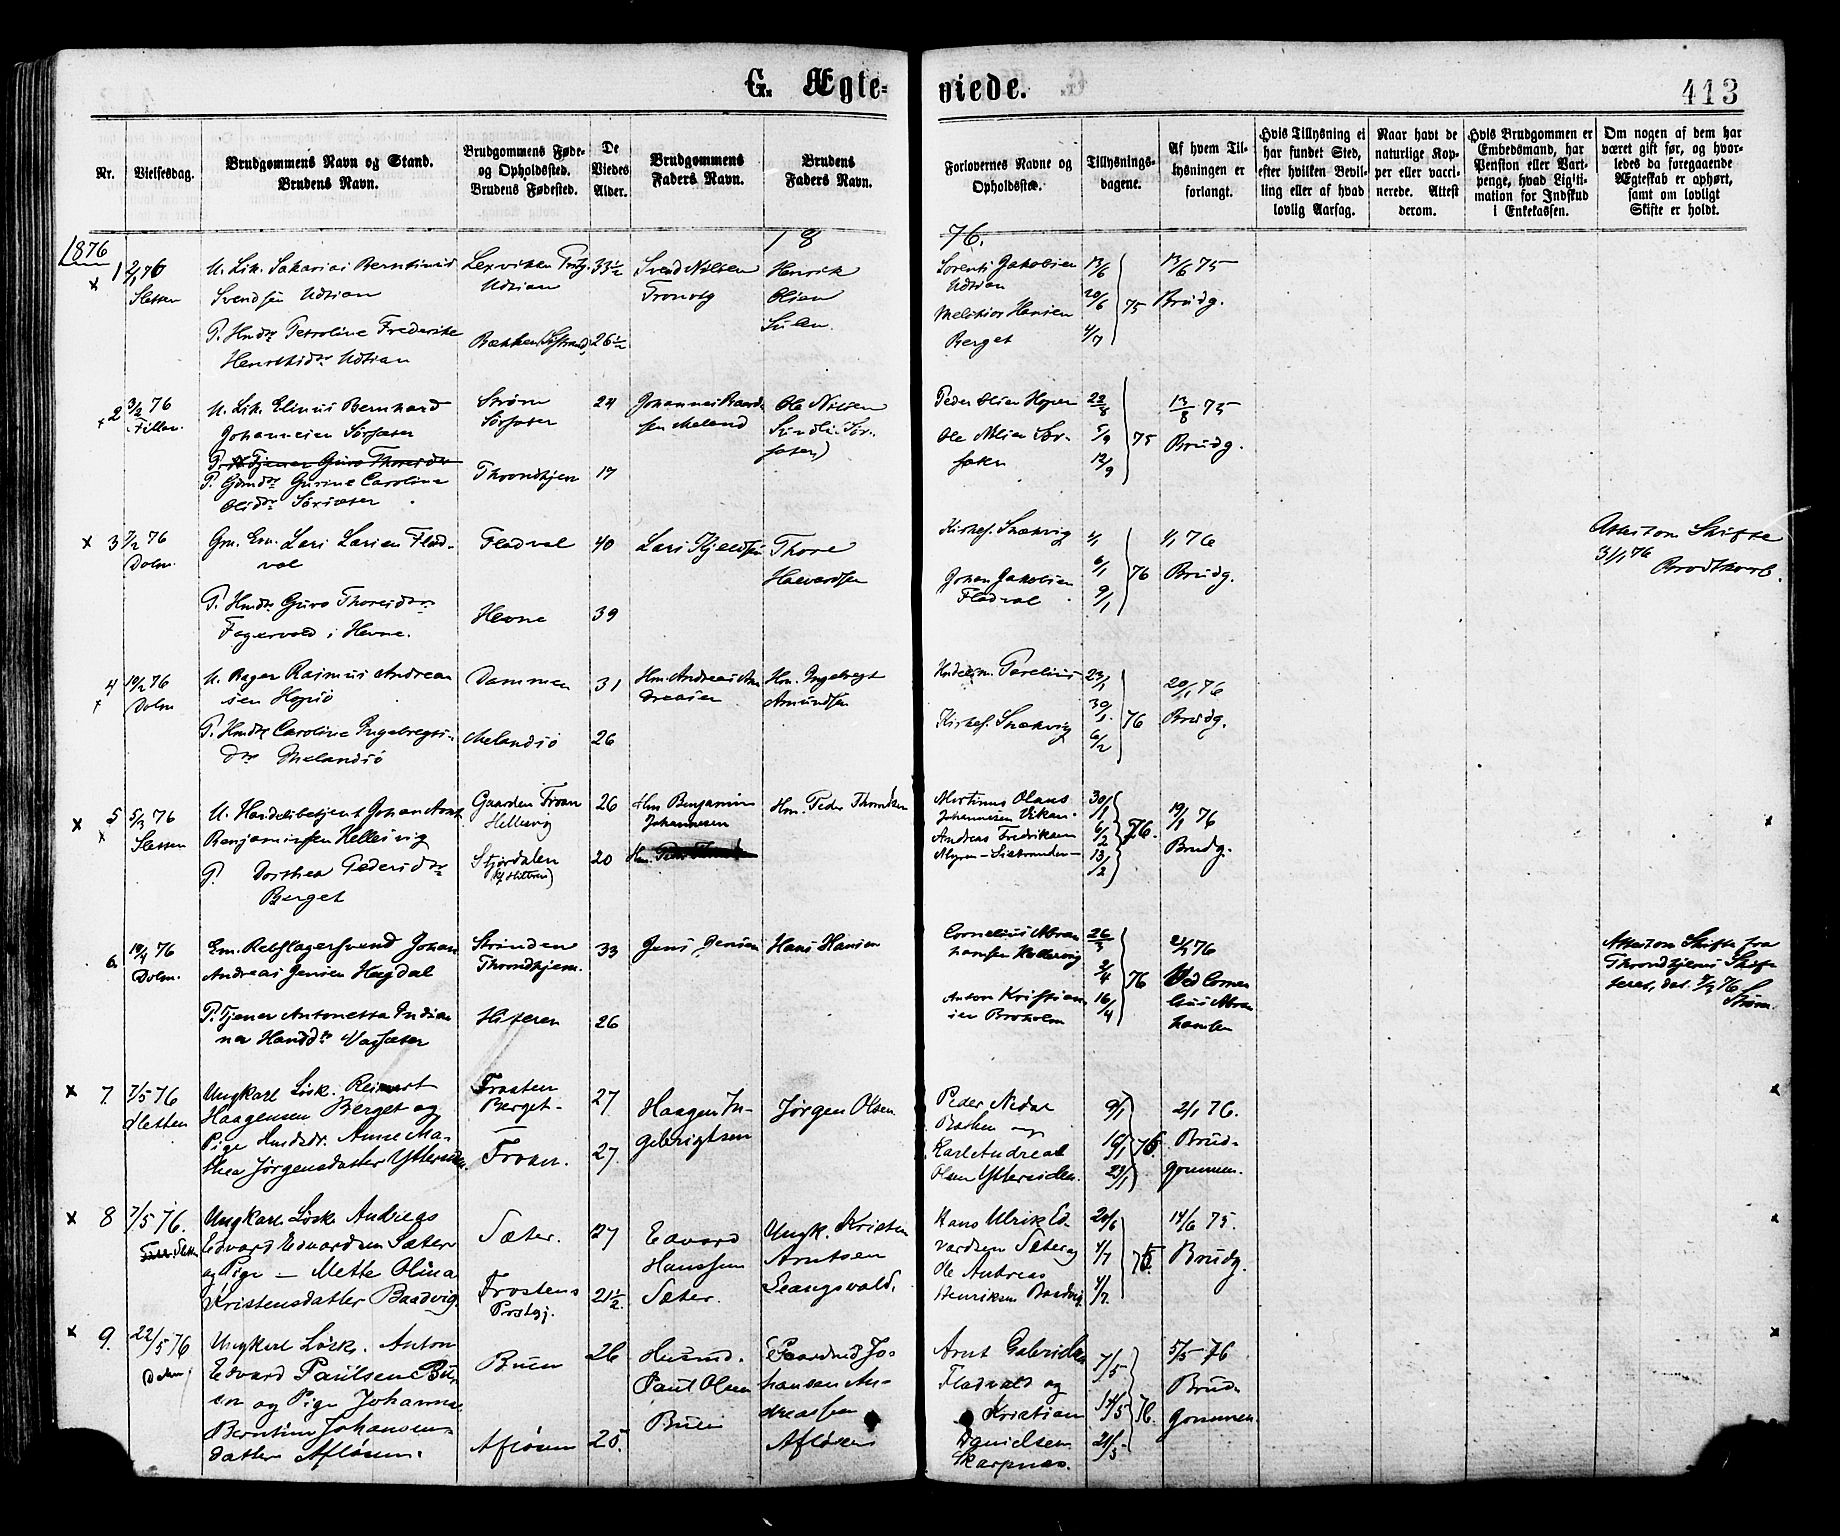 G. Ægte-
viede.
413
Nr.
Vielsesdag.
Brudgommens Navn og Stand.
Brudens Navn.
Brudgommens Føde-
og Opholdssted.
Brudens Fødested.
De
Viedes
Alder.
Brudgommens
Faders Navn.
Brudens
Faders Navn.
Forlovernes Navne og
Opholdssted.
Tillysnings-
dagene.
Af hvem Til-
lysningen er
forlangt.
Hvis Tillysning ei
har fundet Sted,
efter hvilken Bevil-
ling eller af hvad
lovlig Aarsag.
Naar havt de
naturlige Kop-
per eller vacci-
nerede. Attest
derom.
Hvis Brudgommen er
Embedsmand, har
Pension eller Vart-
penge, hvad Ligiti-
mation for Indskud
i Enkekassen.
Om nogen af dem har
været gift før, og hvor-
ledes da foregaaende
Ægteskab er ophørt,
samt om lovligt
Skifte er holdt.
1876
18
76.
1
2/1 76
Sletten
Svendsen Udtian
P. Hmdr Petroline Frederike
Henriksdr Udtian
Udtian
33½
26½
Svend Nilsen
Henrik
Olsen
Udtian
Berget
13/6
20/6
4/7
75
13/6 75
Brudg.
2
3/2 76
Fillan.
U. Lsk. Elinus Bernhard
Johannesen Sørsæter
P. Gdmdr Gurine Caroline
Olsdr Sørsæter
Strøm
Sørsæter
Throndhjem
24
17
Ole Nilsen
Peder Olsen
22/8
5/9
12/9
75
13/8 75
Brudg.
3
7/2 76
Dolm.
Gm. Em. Lars Larsen Flad-
val
P. Hmdr Guro Thoresdr
Fagervold i Hevne.
Fladval
Hevne
40
39
Thore
Haavardsen
Kirkes. Snekvig
Johan Jakobsen
Fladval
1/1
6/1
9/1
76
1/1 76
Brudg.
Attest om Skifte
31/1 76
Brodtkorb.
4
19/2 76
Dolm
U. Bager Rasmus Andrea-
sen Hopsø
P. Hmdr Caroline Ingebregts-
dr Melandsø
Dammen
Melandsø
31
26
Hm. Andreas An-
dreasen
Hm. Ingebregt
Amundsen
Kirkes. Snekvig
23/1
30/1
6/2
76
20/1 76
Brudg.
5
5/3 76
Sletten
U. Handelsbetjent Johan Arnt
Benjaminsen Hellesvig
P. Dorthea Pedersdr
Berget
Gaarden Froan
Hellesvig
Stjørdalen
26
20
Hm Benjamin
Johannesen
Hm. Peder Thomsen
Martinus Olaus
Johannesen Vikan.
Andreas Fredriksen
30/1
6/2
13/2
76.
19/1 76
Brudg.
6.
19/4 76
Dolm.
Em. Rebslagersvend Johan
Andreas Jensen Hagdal
P. Tjener Antonetta India-
na Hansdr Vassæter
Strinden
Throndhjem.
Hiteren
33
26
Jens Jensen
Hans Hansen
Cornelius Abra-
hamsen Kallesvig
Anton Kristian-
sen Broholm
26/3
2/4
16/4
76
76
Ved Corne-
lius Abra-
hamsen
Attest om Skifte fra
Throndhjems Skif-
teret, dat. 7/4 76
Strøm.
7.
7/5 76
Sletten
Ungkarl Løsk. Reinert
Haagensen Berget og
Pige Husmdr. Anne Ma-
thea Jørgensdatter Yttersian
Frosten
Berget
Froan.
27
27.
Haagen In-
gebrigtsen
Jørgen Olsen
Peder Nedal
Karl Andreas
Olsen Yttersiden.
9/1
16/1
23/1
76
2/1 76.
Brud-
gommen.
8
7/5 76.
Sletten
Ungkarl Løsk. Andreas
Edvard Edvardsen Sæter
og Pige — Mette Olina
Kristensdatter Baadvig.
Sæter.
Frostens
Prstgj.
27
21½
Edvard
Hanssen
Sæter.
Ungk. Kristen
Arntsen
Leangsvald.
Hans Ulrik Ed-
vardsen Sæter og
Ole Andreas
Henriksen Baadvig
20/6
4/7
75.
14/6 75.
Brudg.
9.
22/5 76
Dolm
Ungkarl Løsk. Anton
Edvard Paulsen Bu-
en og Pige Johanna
Berntine Johansens-
datter Afløsen.
Buen
Afløsen
26
25.
Husmd.
Paul Olsen
Buen
Gaardmd Jo-
hansen An-
dreassen
Afløsen
Arnt Gabrielsen
Fladvald og
Kristian
Danielsen
Skarpnæs.
7/5
14/5
21/5
76.
5/5 76
Brud-
gommen.